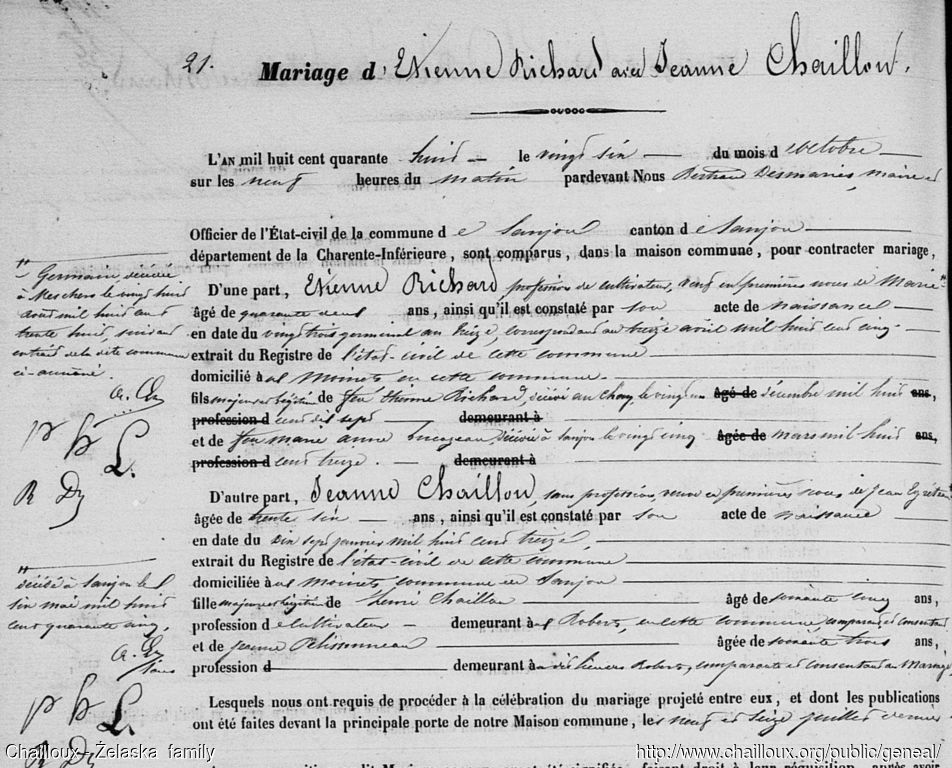 21.
Mariage d'Etienne Richard avec Jeanne Chaillou.
L'AN mil huit cent quarante huit le vingt six du mois d'octobre
sur les neuf heures du matin pardevant Nous Bertrand Desmaries, maire et
Officier de l'État-civil de la commune de Saujon canton de Saujon
département de la Charente-Inférieure, sont comparus, dans la maison commune, pour contracter mariage,
D'une part, Etienne Richard, profession de cultivateur, veuf en premières noces de Marie
âgé de quarante deux ans, ainsi qu'il est constaté par son acte de naissance
en date du vingt trois germinal an treize, correspondant au treize avril mil huit cent cinq
extrait du Registre de l'état-civil de cette commune
domicilié à Moinets en cette commune.
fils majeur et légitime de feu Richard, décédé au Chay, le vingt âgé de décembre mil huit ans,
profession d cent dix sept demeurant à
et de feu Marie Anne décédée à Saujon le vingt cinq âgée de mars mil huit ans,
profession d cent treize. demeurant à
D'autre part, Jeanne Chaillou, sans profession, veuve en premières noces de Jean
âgée de trente six ans, ainsi qu'il est constaté par son acte de naissance
en date du dix sept janvier mil huit cent treize,
extrait du Registre de l'état-civil de cette commune
domiciliée à Moinets commune de Saujon
fille majeure et légitime de Henri Chaillou âgé de soixante cinq ans,
profession de cultivateur demeurant à Roberts, en cette commune comparant et consentant
et de Jeanne Pelissonneau âgée de soixante trois ans,
profession d demeurant à Roberts, comparante et consentant au Mariage
Lesquels nous ont requis de procéder à la célébration du mariage projeté entre eux, et dont les publications
ont été faites devant la principale porte de notre Maison commune, les neuf et seize juillet dernier
Germain, décédée
à Meschers le vingt huit
août mil huit cent
trente huit, suivant
extrait de la dite commune
ci-annexé.
décédé à Saujon le
six mai mil huit
cent quarante cinq,
Chailloux - Želaska family
http://www.chailloux.org/public/geneal/